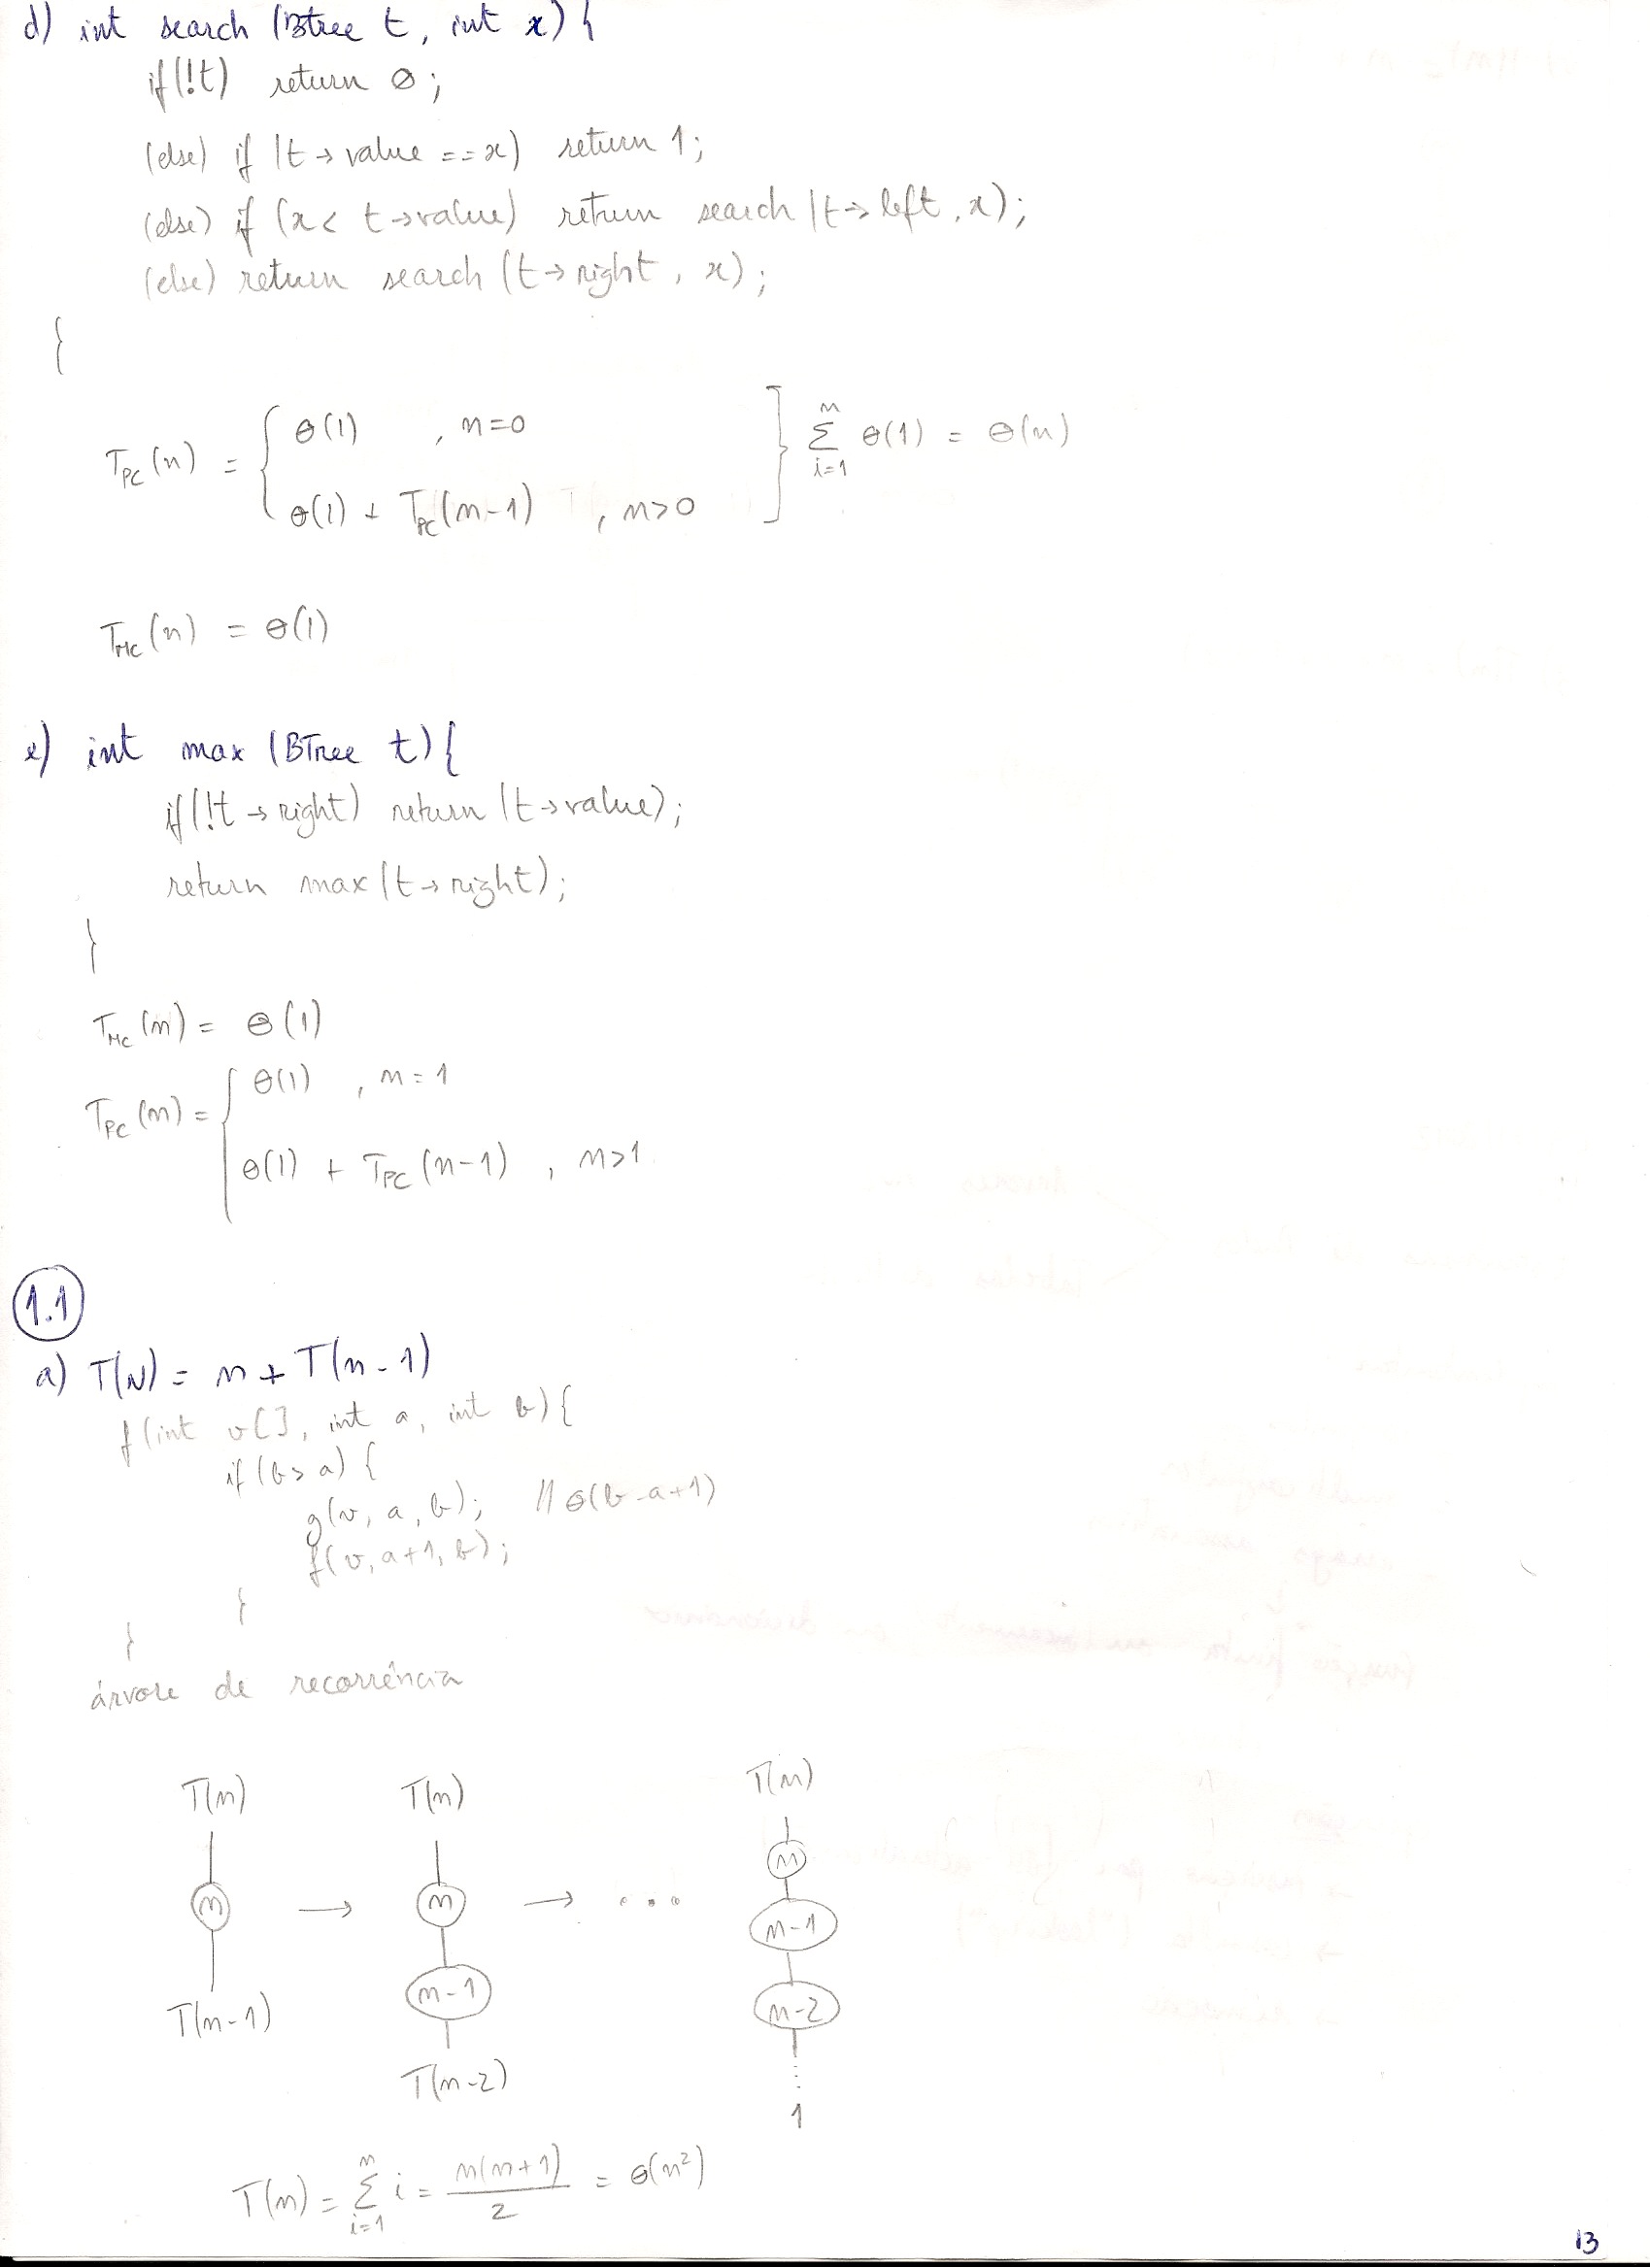 d) int search (Btree t, int x) {
if(!t) return 0;
(else) if (t→value == x) return 1;
(else) if (x < t→value) return search (t→left, x);
(else) return search (t→right, x);
}
T_PC(n) = { Θ(1) , n=0
Θ(1) + T_PC(n-1) , n>0 ] ∑_{i=1}^{n} Θ(1) = Θ(n)
T_MC(n) = Θ(1)
e) int max (BTree t) {
if(!t→right) return (t→value);
return max(t→right);
}
T_MC(n) = Θ(1)
T_PC(n) = { Θ(1) , n=1
Θ(1) + T_PC(n-1) , n>1
1.1
a) T(N) = n + T(n-1)
f(int v[], int a, int b) {
if (b > a) {
g(v, a, b); // Θ(b-a+1)
f(v, a+1, b);
}
}
árvore de recorrência
T(n) T(n) T(n)
n → n → ... n
n-1 n-1
T(n-1) n-2
T(n-2)
1
T(n) = ∑_{i=1}^{n} i = n(n+1)/2 = Θ(n²)
13